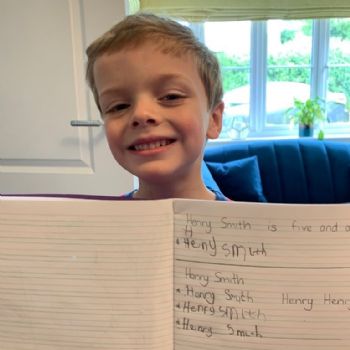 Henry Smith is five and a
H
* Henry smith
Henry Smith
* Henry Smith Henry Henr
* Henry smitch
* Henry Smith